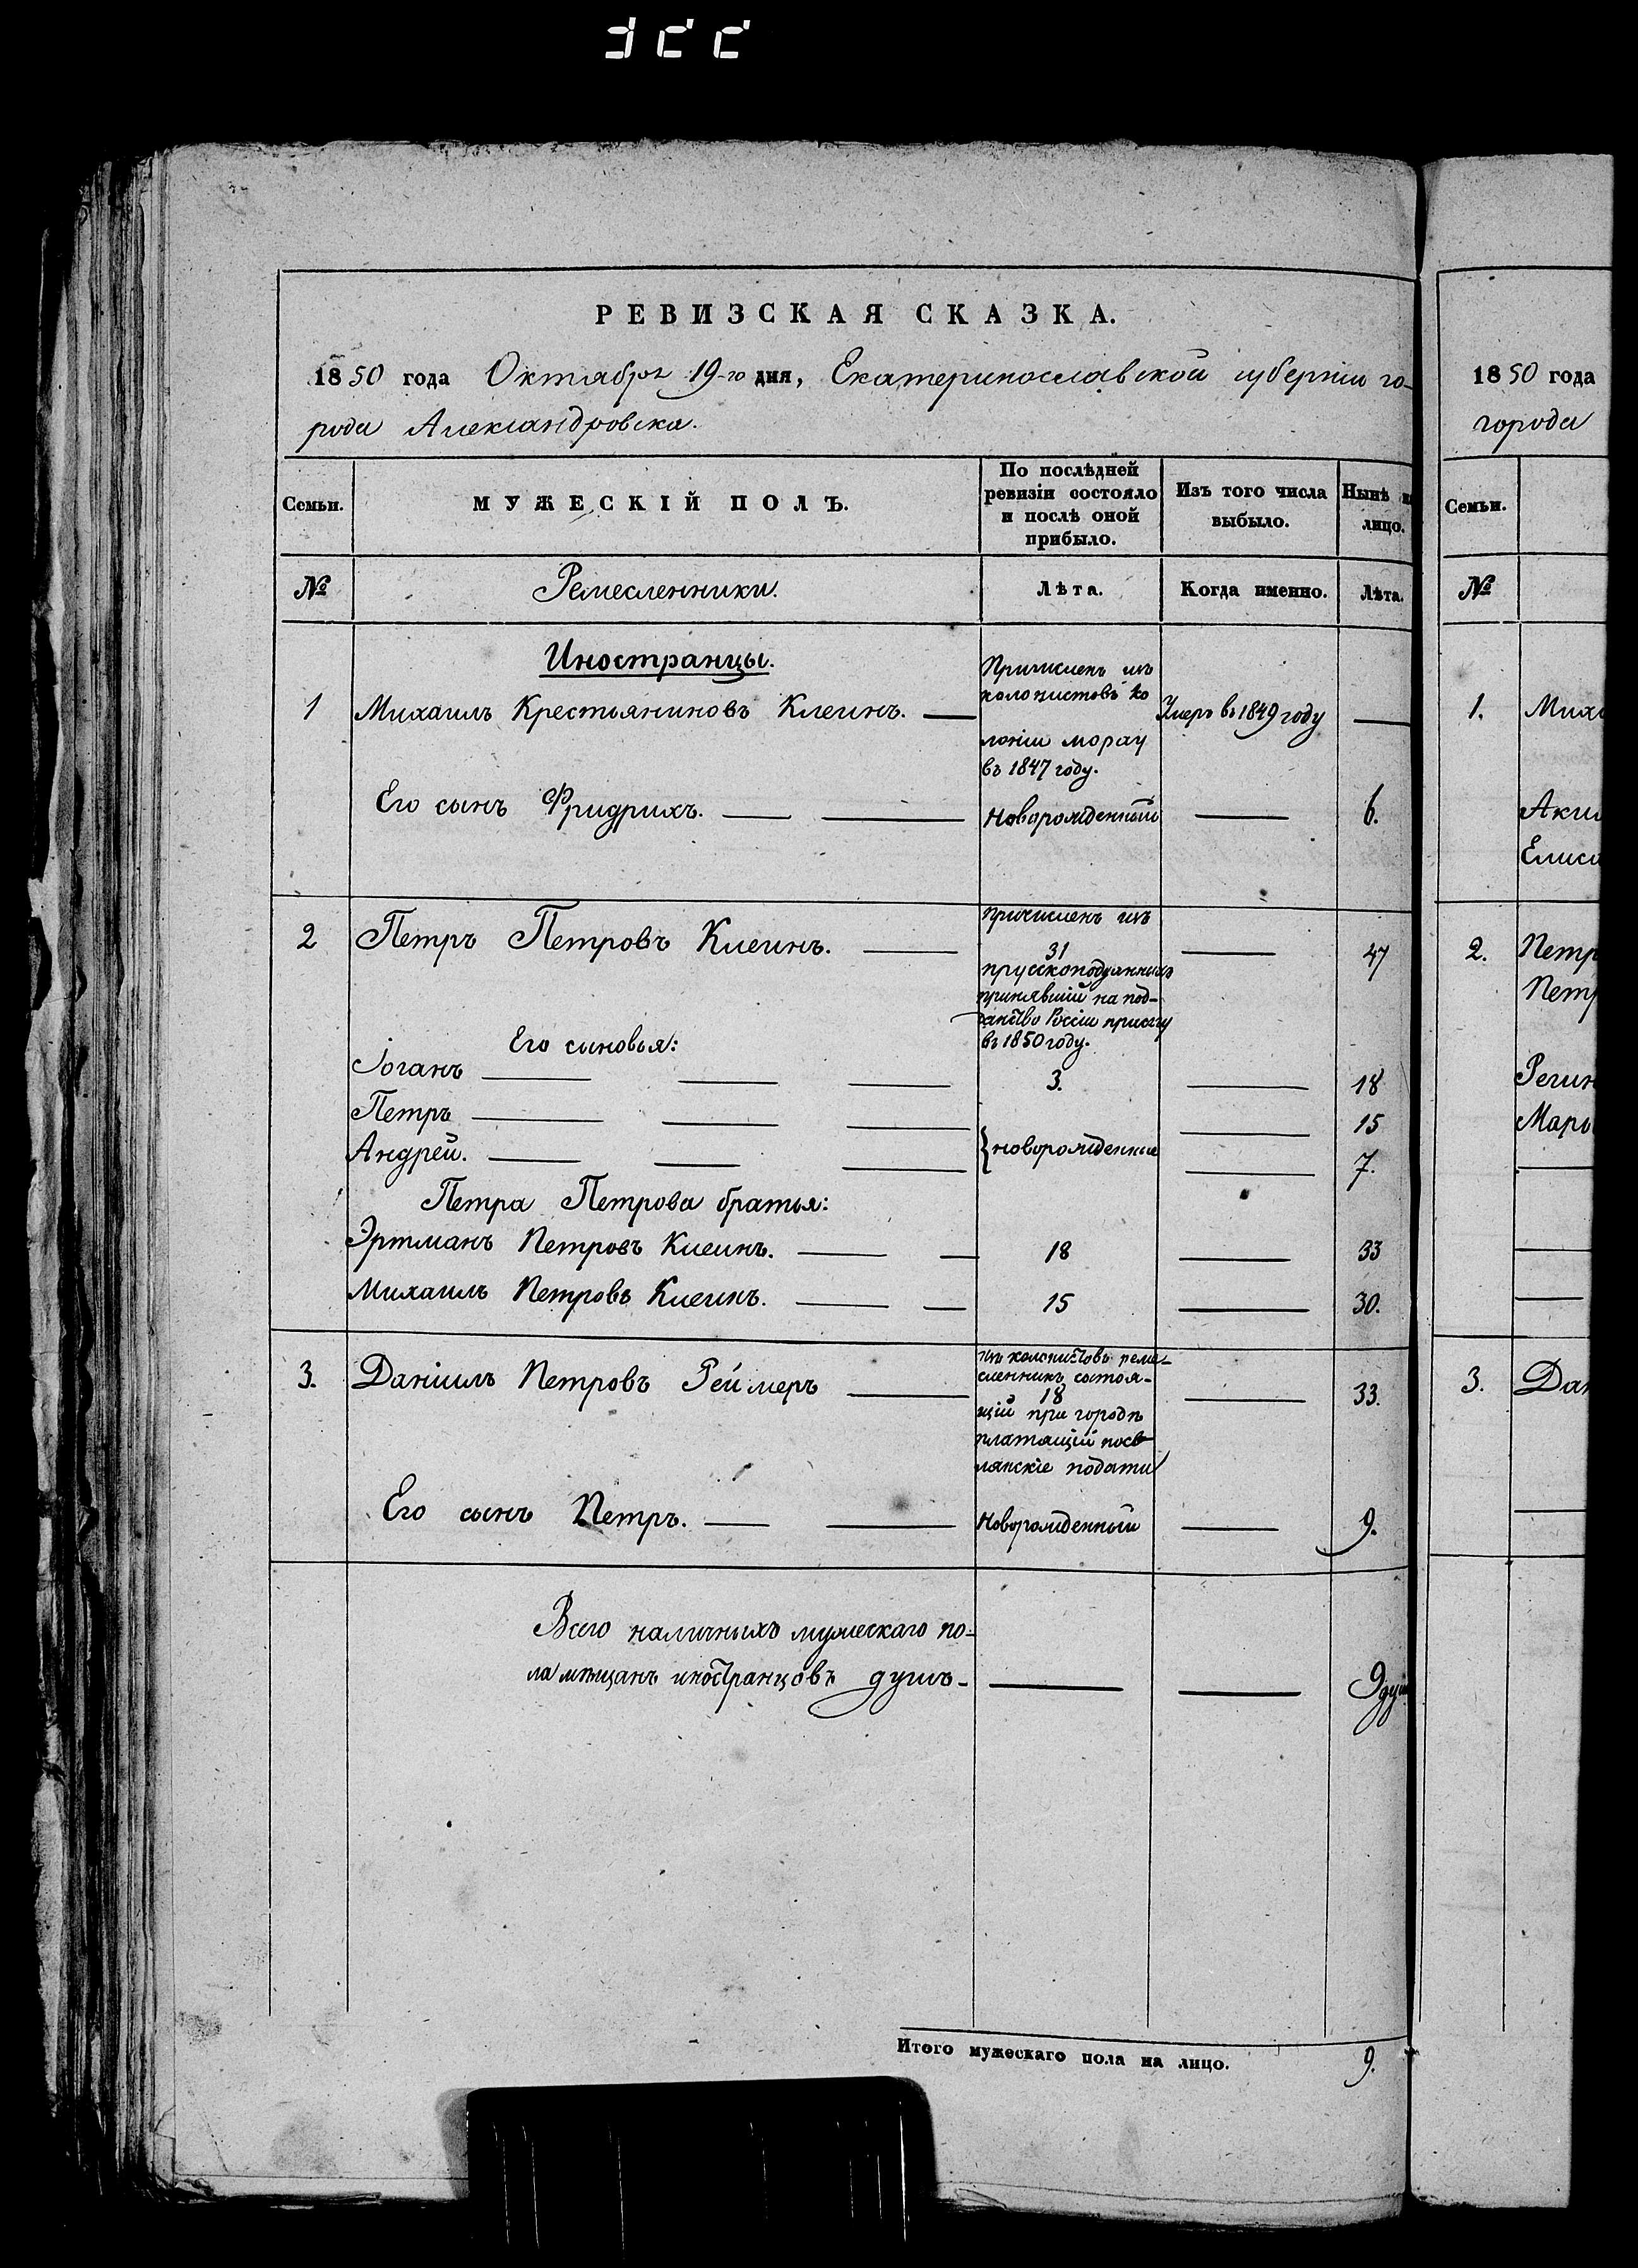 РЕВИЗСКАЯ СКАЗКА.
1850 года Октября 19-го дня, Екатеринославской губерніи го-
рода Александровска.
Семьи.
МУЖЕСКІЙ ПОЛЪ.
По послѣдней
ревизіи состояло
и послѣ оной
прибыло.
Изъ того числа
выбыло.
Нынѣ
лицо.
№
Ремесленники.
Лѣта.
Когда именно.
Лѣта.
Иностранцы.
1 Михаилъ Крестьяниновъ Клеинъ. —
Причисленъ изъ
колонистовъ ко
лоніи морау
въ 1847 году.
Умеръ въ 1849 году —
Его сынъ Фридрихъ. — — Новорожденный — 6.
2 Петръ Петровъ Клеинъ. —
причисленъ изъ
31
прусскоподданныхъ
принявшій на под-
данство Россіи присягу
въ 1850 году.
— 47
Его сыновья:
Іоганъ — — — 3. — 18
Петръ — — — — 15
Андрей. — — — } новорожденные — 7.
Петра Петрова братья:
Эртманъ Петровъ Клеинъ. — — 18 — 33
Михаилъ Петровъ Клеинъ. — — 15 — 30.
3. Даніилъ Петровъ Реймеръ —
изъ колонистовъ реме-
сленникъ состоя-
18
щій при городѣ
платящій посе
лянскіе подати
— 33.
Его сынъ Петръ. — — Новорожденный — 9.
Всего наличныхъ мужескаго по-
ла мѣщанъ иностранцовъ душъ - — — 9 душ
Итого мужескаго пола на лицо. 9.
1850 года
города
Семьи.
№
1.
2. Петр
Петр
Мары
3. Дан